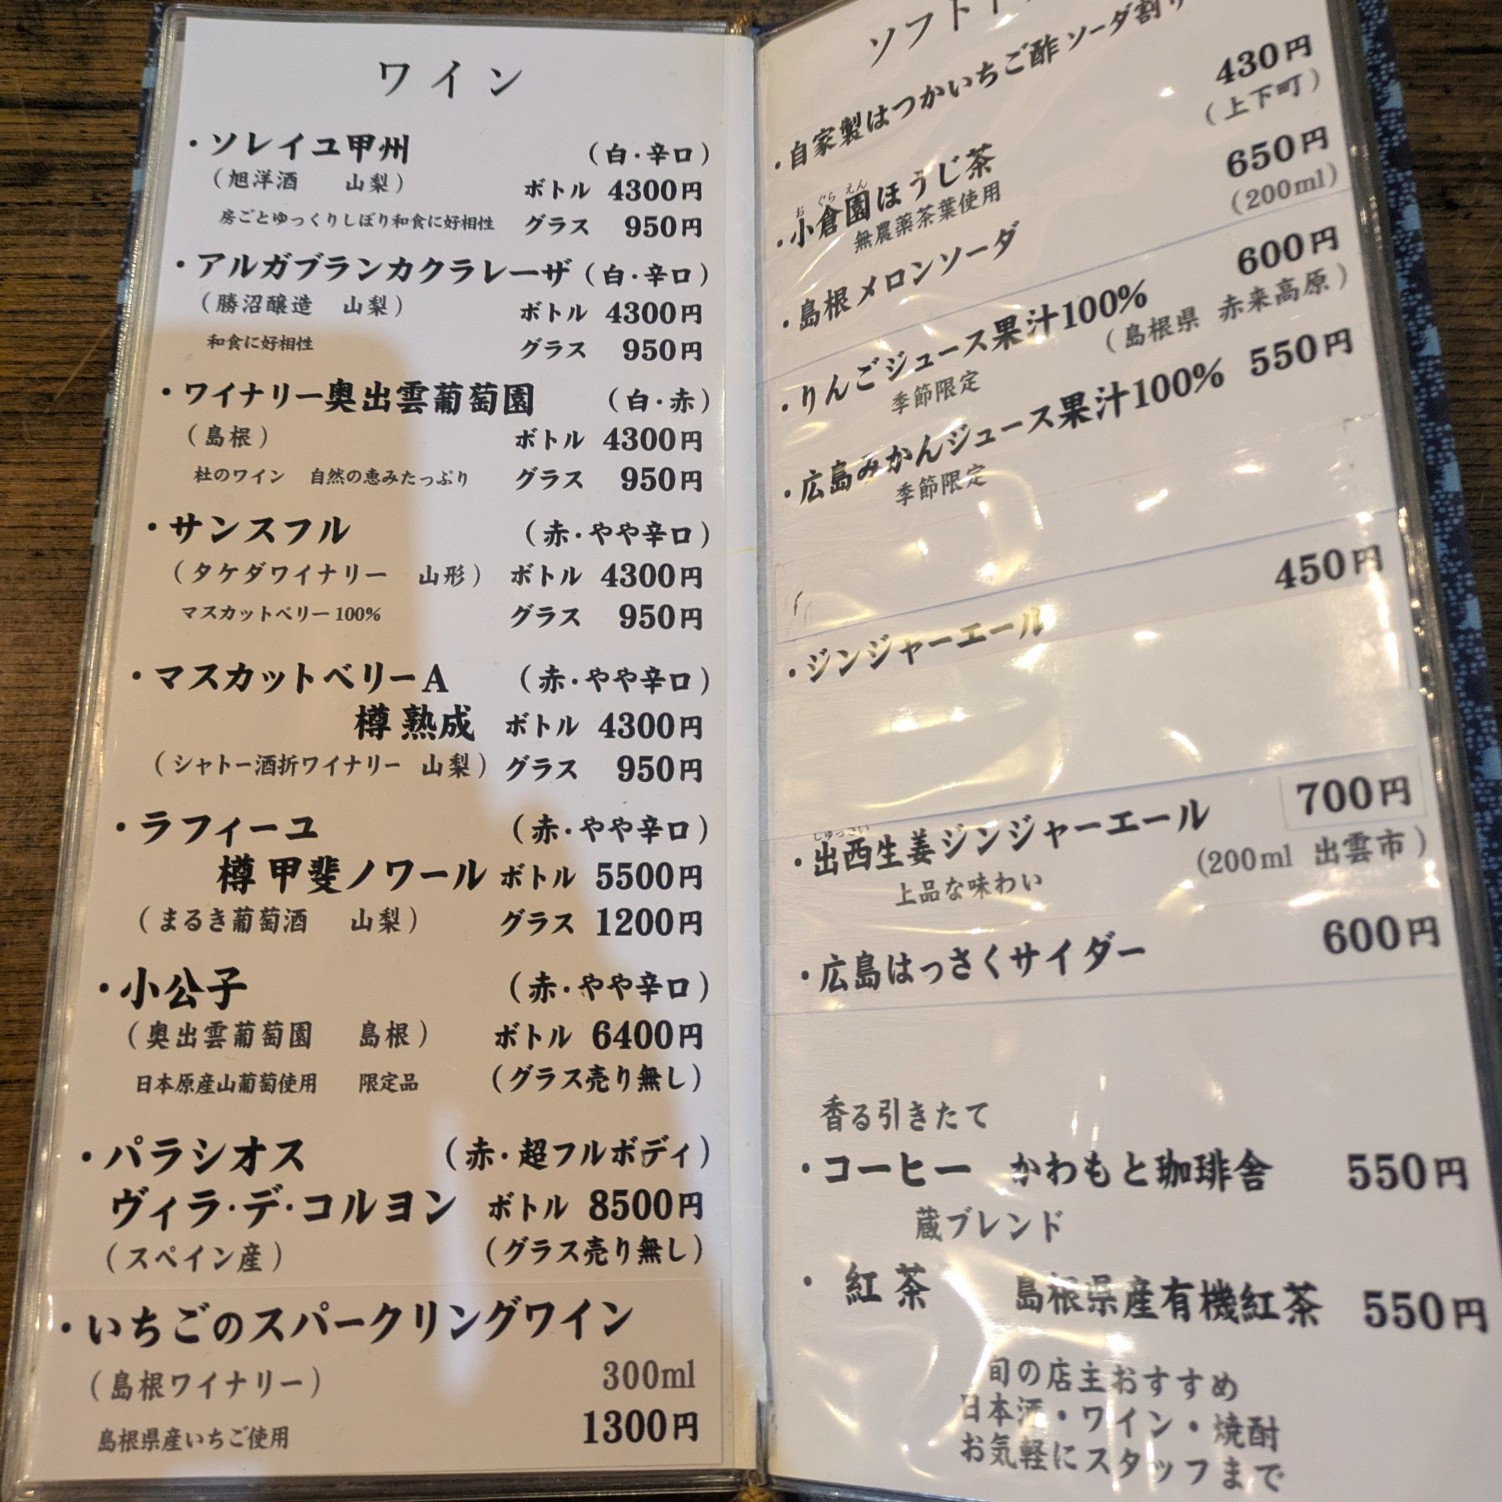 ワイン
・ソレイユ甲州 (白・辛口)
(旭洋酒 山梨) ボトル 4300円
房ごとゆっくりしぼり和食に好相性 グラス 950円
・アルガブランカクラレーザ (白・辛口)
(勝沼醸造 山梨) ボトル 4300円
和食に好相性 グラス 950円
・ワイナリー奥出雲葡萄園 (白・赤)
(島根) ボトル 4300円
杜のワイン 自然の恵みたっぷり グラス 950円
・サンスフル (赤・やや辛口)
(タケダワイナリー 山形) ボトル 4300円
マスカットベリー100% グラス 950円
・マスカットベリーA (赤・やや辛口)
樽熟成 ボトル 4300円
(シャトー酒折ワイナリー 山梨) グラス 950円
・ラフィーユ (赤・やや辛口)
樽甲斐ノワール ボトル 5500円
(まるき葡萄酒 山梨) グラス 1200円
・小公子 (赤・やや辛口)
(奥出雲葡萄園 島根) ボトル 6400円
日本原産山葡萄使用 限定品 (グラス売り無し)
・パラシオス (赤・超フルボディ)
ヴィラ・デ・コルヨン ボトル 8500円
(スペイン産) (グラス売り無し)
・いちごのスパークリングワイン
(島根ワイナリー) 300ml
島根県産いちご使用 1300円
ソフト
・自家製はつかいちご酢 ソーダ割り
430円
・小倉園ほうじ茶 (上下町)
おぐらえん
無農薬茶葉使用
650円
・島根メロンソーダ (200ml)
600円
・りんごジュース果汁100% (島根県 赤来高原)
季節限定
550円
・広島みかんジュース果汁100%
季節限定
450円
・ジンジャーエール
700円
・出西生姜ジンジャーエール (200ml 出雲市)
しゅっさい
上品な味わい
600円
・広島はっさくサイダー
香る引きたて
・コーヒー かわもと珈琲舎 550円
蔵ブレンド
・紅茶 島根県産有機紅茶 550円
旬の店主おすすめ
日本酒・ワイン・焼酎
お気軽にスタッフまで